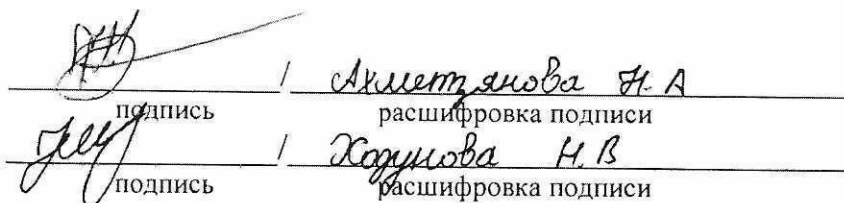 / Ахметзянова Н. А
подпись расшифровка подписи
/ Ходунова Н. В
подпись расшифровка подписи